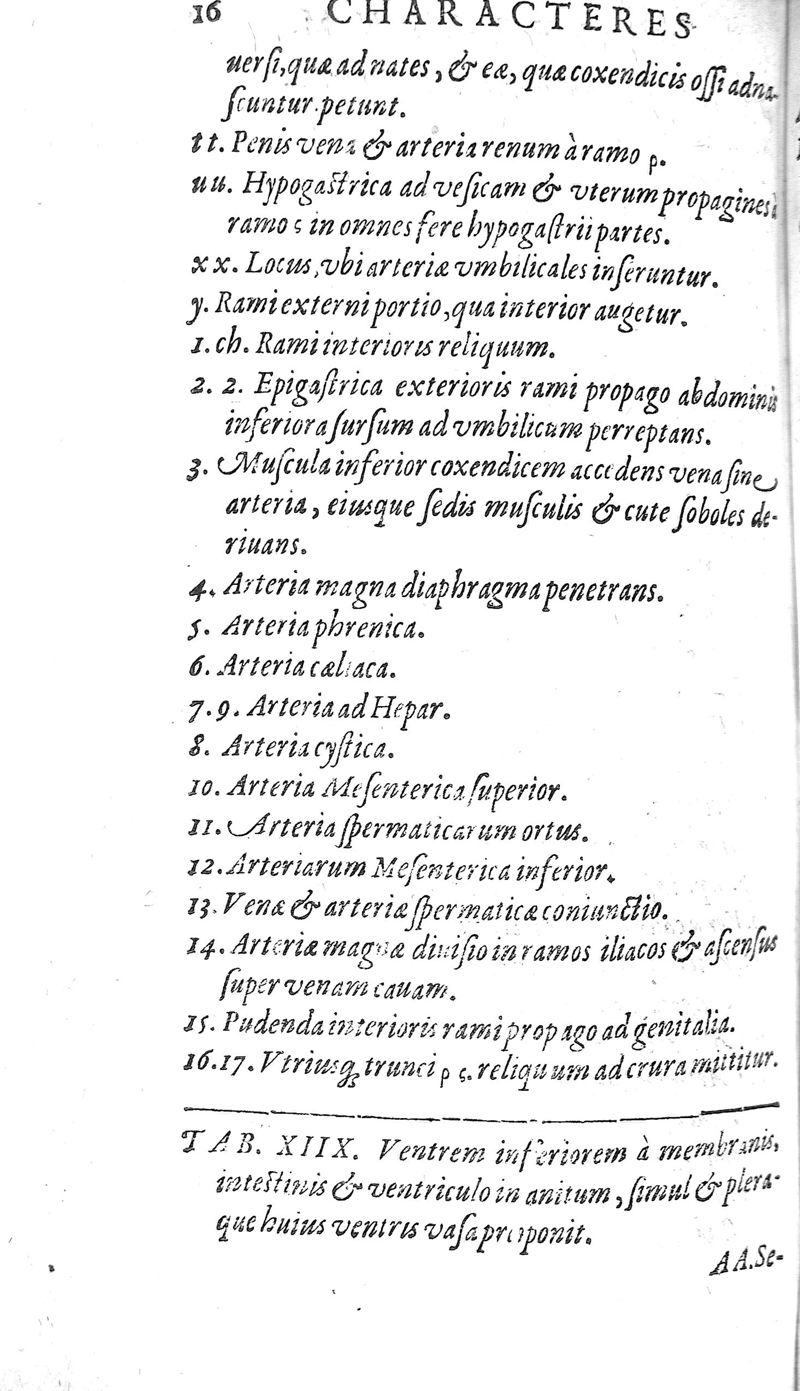 16 CHARACTERES
uerſi, quæ ad nates, & eæ, quæ coxendicis oſſi adna-
ſcuntur petunt.
tt. Penis vena & arteria renum à ramo ρ.
uu. Hypogaſtrica ad veſicam & vterum propagines à
ramo ς in omnes fere hypogaſtrii partes.
xx. Locus, vbi arteriæ vmbilicales inſeruntur.
y. Rami externi portio, qua interior augetur.
1. ch. Rami interioris reliquum.
2. 2. Epigaſtrica exterioris rami propago abdominis
inferiora ſurſum ad vmbilicum perreptans.
3. Muſcula inferior coxendicem accedens vena ſine
arteria, eiusque ſedis muſculis & cute ſoboles de-
riuans.
4. Arteria magna diaphragma penetrans.
5. Arteria phrenica.
6. Arteria cæliaca.
7. 9. Arteria ad Hepar.
8. Arteria cyſtica.
10. Arteria Meſenterica ſuperior.
11. Arteria ſpermaticarum ortus.
12. Arteriarum Meſenterica inferior.
13. Venæ & arteriæ ſpermaticæ coniunctio.
14. Arteriæ magnæ diuiſio in ramos iliacos & aſcenſus
ſuper venam cauam.
15. Pudenda interioris rami propago ad genitalia.
16. 17. Vtriusq; trunci ρ ς. reliquum ad crura mittitur.
TAB. XIIX. Ventrem inferiorem à membranis,
inteſtinis & ventriculo in anitum, ſimul & plera-
que huius ventris vaſa proponit.
AA. Se-